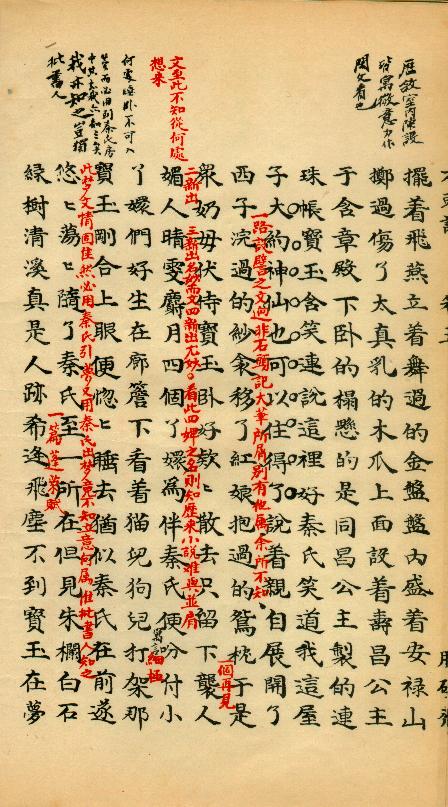 歷敘室內陳設
皆寓微意勿作
閑文看也
文至此不知從何處
想来
何處睡卧不可入
夢而必用到秦氏房
中其意我亦知之矣
我亦知之豈獨
批書人
擺着飛燕立着舞過的金盤盤內盛着安禄山
擲過傷了太真乳的木瓜上面設着壽昌公主
于含章殿下卧的榻懸的是同昌公主製的連
珠帳寶玉含笑連說這裡好秦氏笑道我這屋
子大約神仙也可以住得了說着親自展開了
一路設譬之文迥非石頭記大筆所屑別有他屬余所不知
西子浣過的紗衾移了紅娘抱過的鴛枕于是
一個再見
衆奶母伏侍寶玉卧好欵ヒ散去只留下襲人
二新出 三新出名妙而文 四新出尤妙 看此四婢之名則知歷来小說難與並肩
媚人晴雯麝月四個丫嬛為伴秦氏便分付小
丫嬛們好生在廊簷下看着猫兒狗兒打架那
細極
寶玉剛合上眼便惚ヒ睡去猶似秦氏在前遂
此夢文情固佳然必用秦氏引夢又用秦氏出夢竟不知立意何屬惟批書人知之
悠ヒ蕩ヒ隨了秦氏至一所在但見朱欄白石
一篇蓬萊賦
綠樹清溪真是人跡希逢飛塵不到寶玉在夢